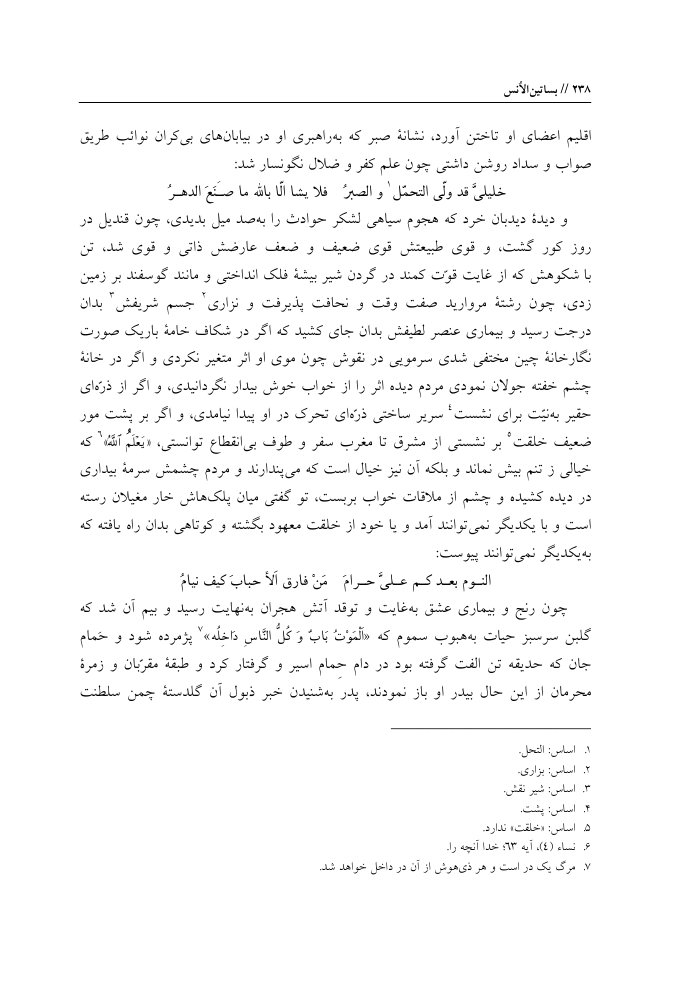 ۲۳۸ // بساتین‌الأنس
اقلیم اعضای او تاختن آورد، نشانهٔ صبر که به‌راهبری او در بیابان‌های بی‌کران نوائب طریق
صواب و سداد روشن داشتی چون علم کفر و ضلال نگونسار شد:
خلیلیَّ قد ولّی التحمّل۱ و الصبرُ فلا یشا الّا بالله ما صَنَعَ الدهرُ
و دیدهٔ دیدبان خرد که هجوم سیاهی لشکر حوادث را به‌صد میل بدیدی، چون قندیل در
روز کور گشت، و قوی طبیعتش قوی ضعیف و ضعف عارضش ذاتی و قوی شد، تن
با شکوهش که از غایت قوّت کمند در گردن شیر بیشهٔ فلک انداختی و مانند گوسفند بر زمین
زدی، چون رشتهٔ مروارید صفت وقت و نحافت پذیرفت و نزاری۲ جسم شریفش۳ بدان
درجت رسید و بیماری عنصر لطیفش بدان جای کشید که اگر در شکاف خامهٔ باریک صورت
نگارخانهٔ چین مختفی شدی سرمویی در نقوش چون موی او اثر متغیر نکردی و اگر در خانهٔ
چشم خفته جولان نمودی مردم دیده اثر را از خواب خوش بیدار نگردانیدی، و اگر از ذرّه‌ای
حقیر به‌نیّت برای نشست۴ سریر ساختی ذرّه‌ای تحرک در او پیدا نیامدی، و اگر بر پشت مور
ضعیف خلقت۵ بر نشستی از مشرق تا مغرب سفر و طوف بی‌انقطاع توانستی، «یَعْلَمُ ٱللَّهُ»۶ که
خیالی ز تنم بیش نماند و بلکه آن نیز خیال است که می‌پندارند و مردم چشمش سرمهٔ بیداری
در دیده کشیده و چشم از ملاقات خواب بربست، تو گفتی میان پلک‌هاش خار مغیلان رسته
است و با یکدیگر نمی‌توانند آمد و یا خود از خلقت معهود بگشته و کوتاهی بدان راه یافته که
به‌یکدیگر نمی‌توانند پیوست:
النوم بعد کم علیَّ حرامَ مَنْ فارق اَلأ حبابَ کیف نیامُ
چون رنج و بیماری عشق به‌غایت و توقد آتش هجران به‌نهایت رسید و بیم آن شد که
گلبن سرسبز حیات به‌هبوب سموم که «اَلْمَوْتُ بَابٌ وَ کُلُّ النَّاسِ دَاخِلُه»۷ پژمرده شود و حَمام
جان که حدیقه تن الفت گرفته بود در دام حِمام اسیر و گرفتار کرد و طبقهٔ مقرّبان و زمرهٔ
محرمان از این حال بیدر او باز نمودند، پدر به‌شنیدن خبر ذبول آن گلدستهٔ چمن سلطنت
۱. اساس: التحل.
۲. اساس: بزاری.
۳. اساس: شیر نقش.
۴. اساس: پشت.
۵. اساس: «خلقت» ندارد.
۶. نساء (٤)، آیه ۶۳؛ خدا آنچه را.
۷. مرگ یک در است و هر ذی‌هوش از آن در داخل خواهد شد.